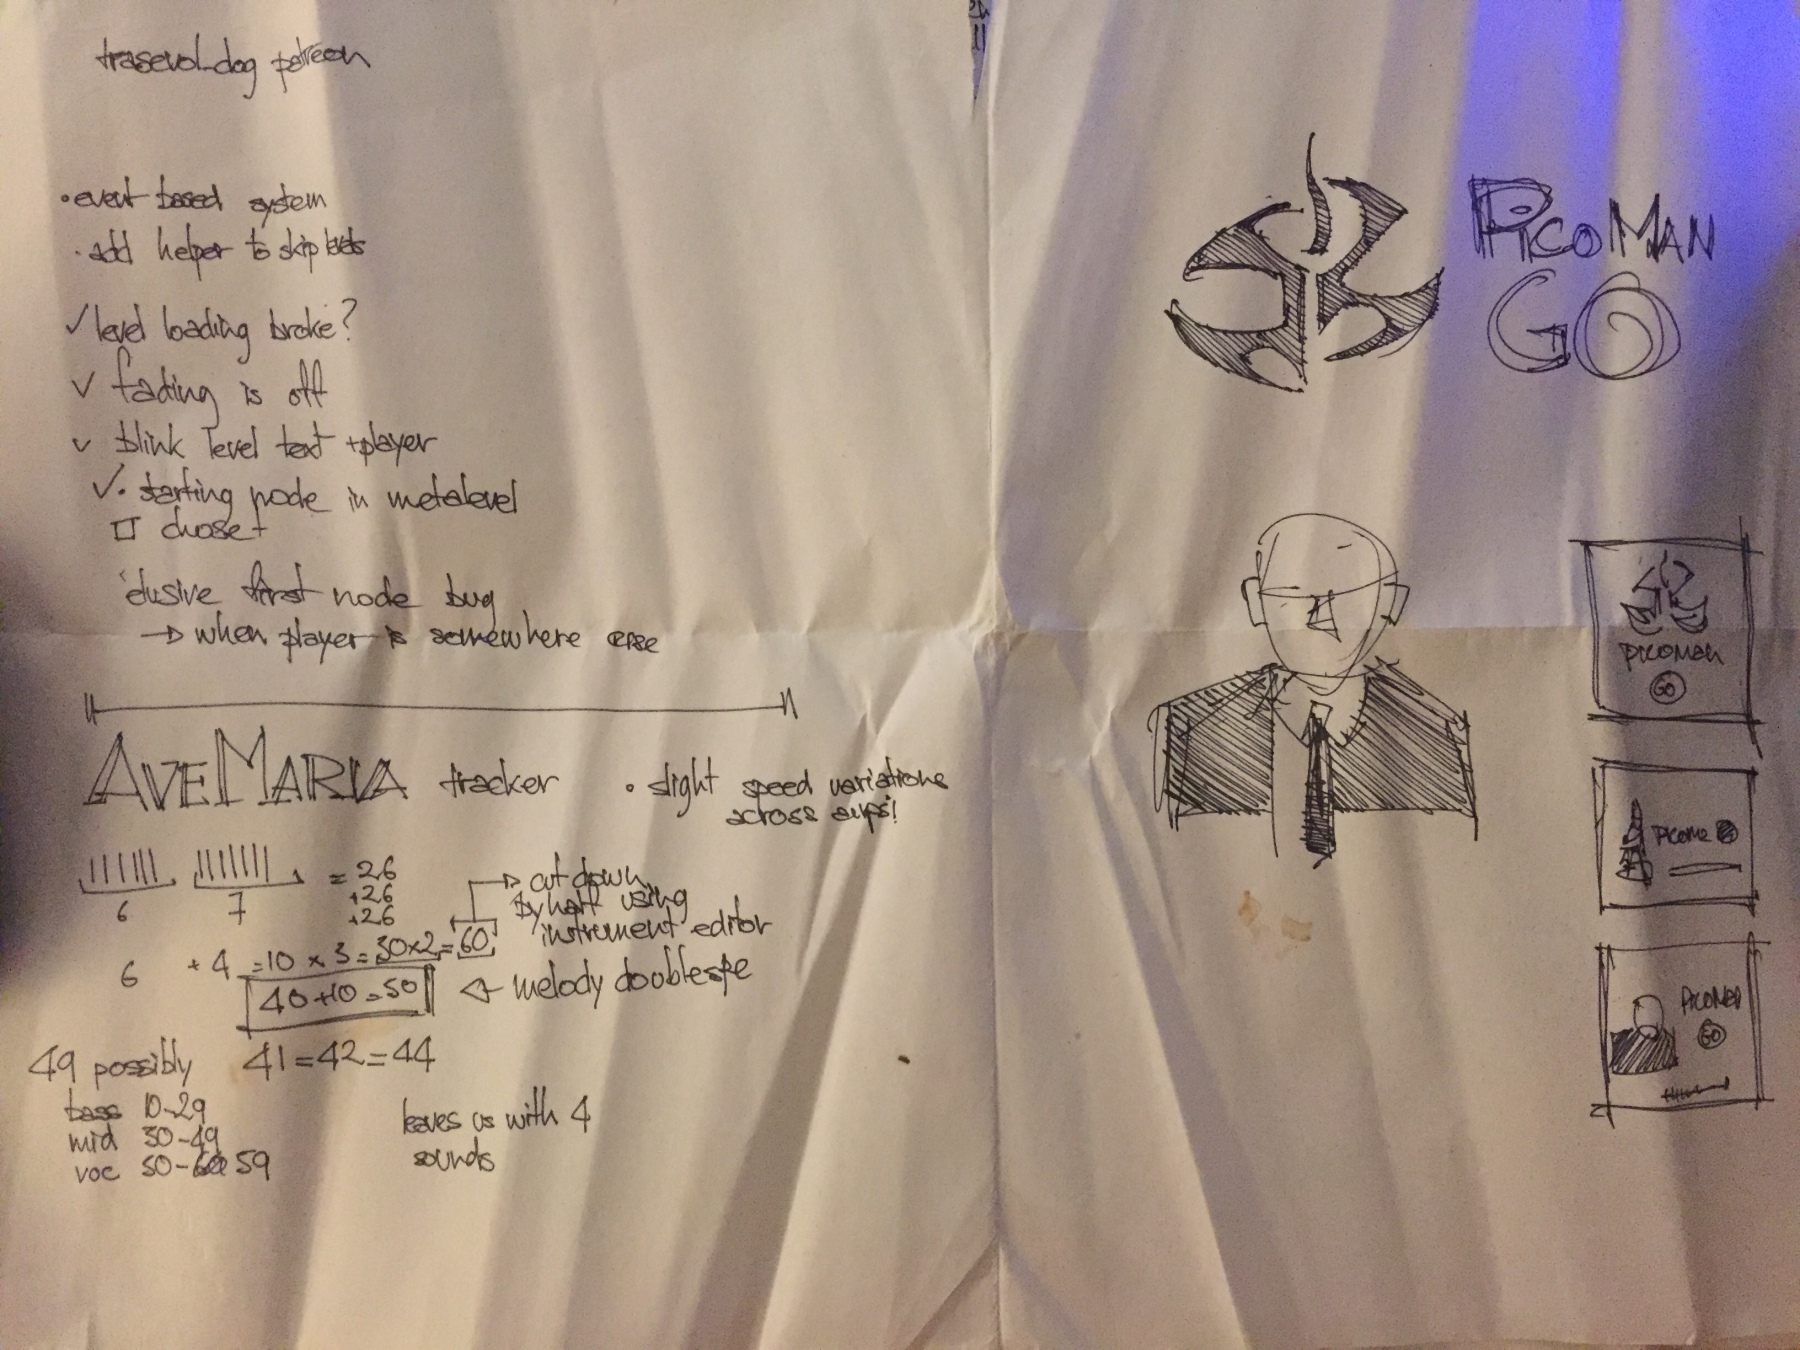 trasevol_dog patreon
• event based system
• add helper to skip levels
✓ level loading broke?
✓ fading is off
✓ blink level text + player
✓ • starting node in metalevel
□ chose
elusive first node bug
→ when player is somewhere else
AVE MARIA tracker
• slight speed variations
across
6 7 = 26
+26
+26
→ cut down
by half using
instrument editor
6 + 4 = 10 × 3 = 30×2 = 60
40+10=50
melody
49 possibly 41=42=44
bass 10-29
mid 30-49
voc 50-59
leaves us with 4
sounds
PICOMAN
GO
PICOMAN
GO
PICOMAN
GO